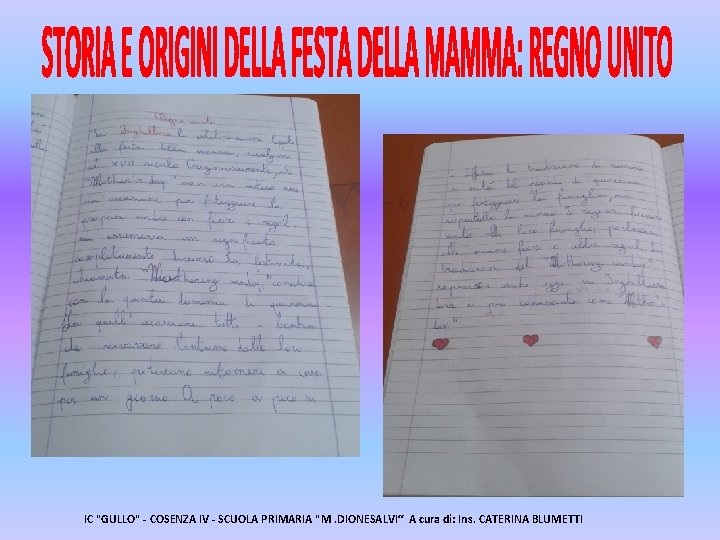 STORIA E ORIGINI DELLA FESTA DELLA MAMMA: REGNO UNITO
Regno unito
"In Inghilterra le celebrazioni legate
alla festa della mamma, risalgono
al XVII secolo. Originariamente, il
"Mother's day" non era inteso come
un occasione per festeggiare la
propria madre con fiori e regali,
ma assumeva un significato
completamente diverso. La festività,
chiamata "Mothering sunday," coincideva
con la quarta domenica di quaresima
In quell' occasione, tutti i bambini
che vivevano lontano dalle loro
famiglie, potevano ritornare a casa
per un giorno. A poco a poco si
diffuse la tradizione di
a metà del periodo di quaresima
per festeggiare la famiglia, ma
soprattutto la mamma. I ragazzi facevano
visita alle loro famiglie, portavano
alle mamme fiori o altri regali. La
tradizione del "Mothering sunday"
anche oggi in Inghilterra
è più conosciuta come "Mothers
Day"
IC "GULLO" - COSENZA IV - SCUOLA PRIMARIA "M .DIONESALVI“ A cura di: Ins. CATERINA BLUMETTI